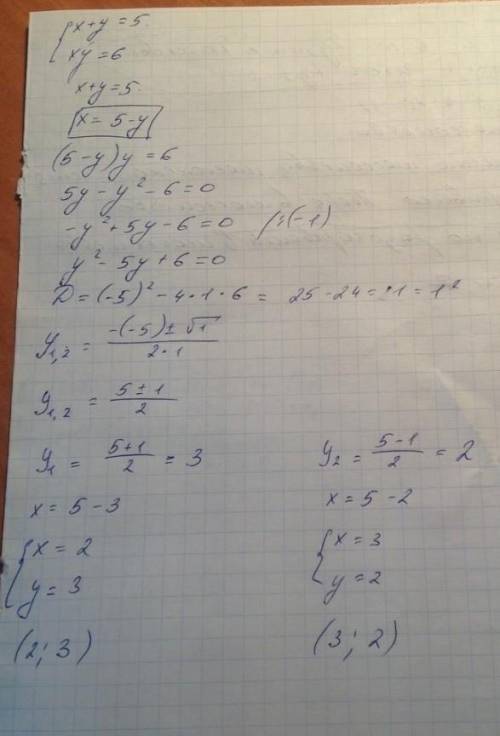 { x+y=5.
xy=6
x+y=5.
x= 5-y
(5-y)y=6
5y-y²-6=0
-y²+5y-6=0 /:(-1)
y²-5y+6=0
D=(-5)²-4·1·6= 25-24=1=1²
y₁,₂ = (-(-5)±√1)/(2·1)
y₁,₂ = (5±1)/2
y₁ = (5+1)/2 = 3 y₂ = (5-1)/2 = 2
x=5-3 x=5-2
{ x=2 { x=3
y=3 y=2
(2; 3) (3; 2)